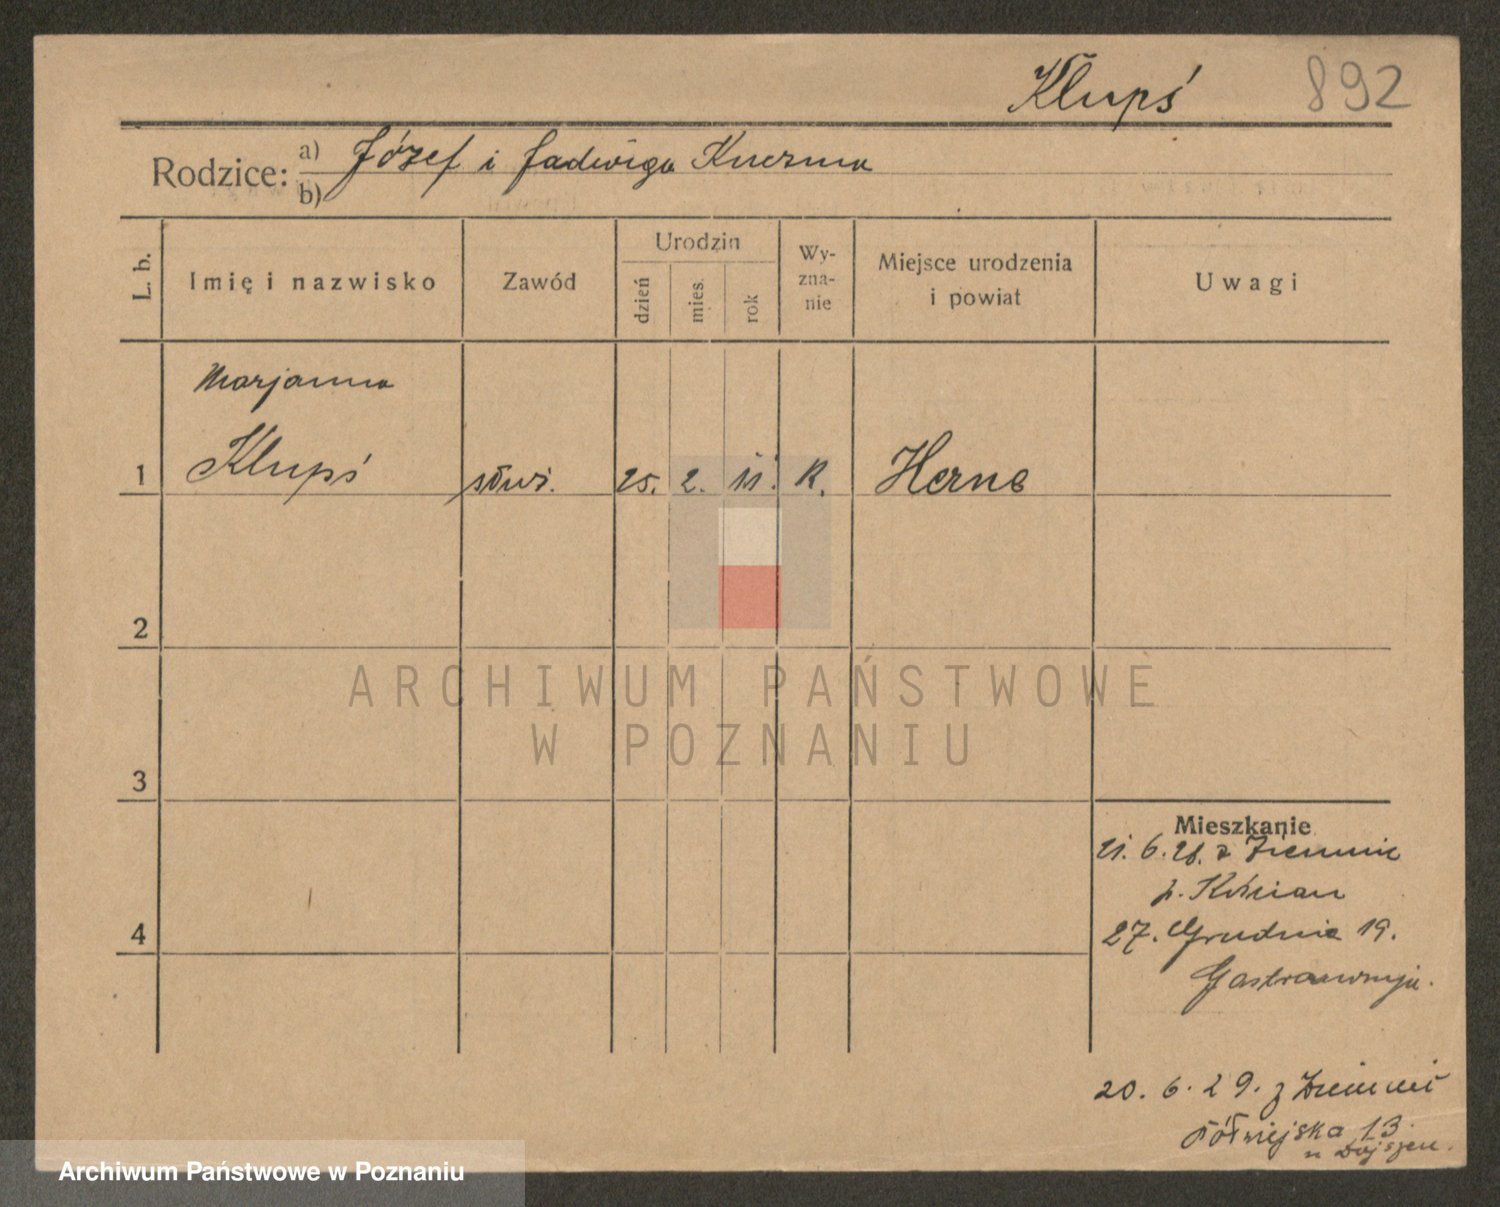 Kłupś 892
Rodzice: a) Józef i Jadwiga Kuczma
b)
L. b.
Imię i nazwisko
Zawód
Urodzin
dzień
mies.
rok
Wy-
zna-
nie
Miejsce urodzenia
i powiat
Uwagi
Marjanna
1 Klupś służ. 25. 2. 11. R. Herne
2
3
4
ARCHIWUM PAŃSTWOWE
W POZNANIU
Mieszkanie
21. 6. 28. z
p. Kościan
27. Grudnia 19.
20. 6. 29. z
Półwiejska 13
u
Archiwum Państwowe w Poznaniu